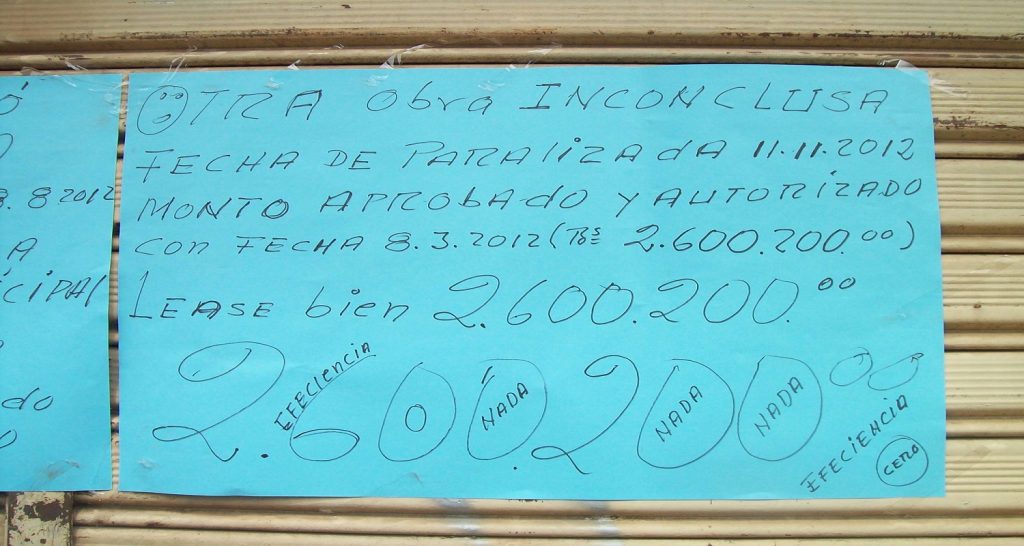 Ó
O
3. 8 2012
A
CIPAl
do
OTRA Obra INCONCLUSA
FECHA DE PARAlizAdA 11.11.2012
MONTO APRObADO Y AUTORIZADO
con FECHA 8.3.2012 (Bs 2.600.200.00)
LEASE bien 2.600.200.00
2.600.200.00
EFECIENCIA
O
NADA
NADA
NADA
EFECIENCIA
CERO